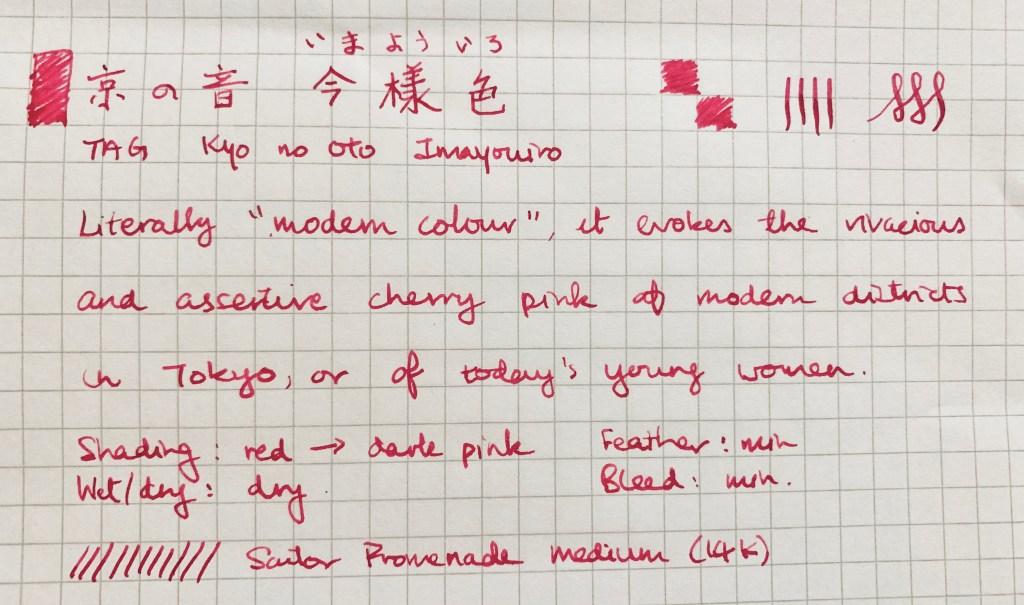 いまよういろ
京の音 今様色
TAG Kyo no oto Imayouiro
Literally "modern colour", it evokes the vivacious
and assertive cherry pink of modern districts
in Tokyo, or of today's young women.
Shading: red → dark pink Feather: min
Wet/dry: dry. Bleed: min.
Sailor Promenade medium (14K)